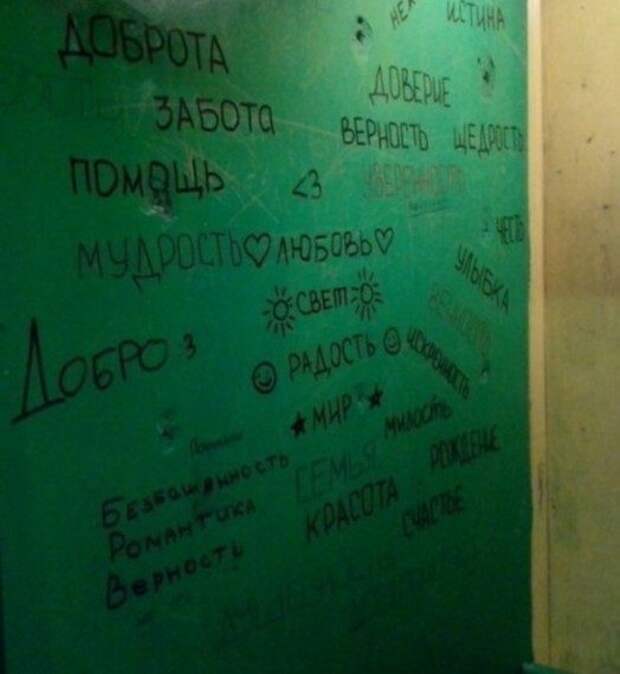 ИСТИНА
ДОБРОТА
ДОВЕРИЕ
ЗАБОТА
ВЕРНОСТЬ ЩЕДРОСТЬ
ПОМОЩЬ <3 УВЕРЕННОСТЬ
ЧЕСТЬ
МУДРОСТЬ♡ЛЮБОВЬ♡
УЛЫБКА
☼СВЕТ☼
ДОБРО 3
☺ РАДОСТЬ ☺
ИСКРЕННОСТЬ
★ МИР ★
МИЛОСТЬ
БЕЗБАШЕННОСТЬ
СЕМЬЯ
РОЖДЕНЬЕ
РОМАНТИКА
КРАСОТА
СЧАСТЬЕ
ВЕРНОСТЬ